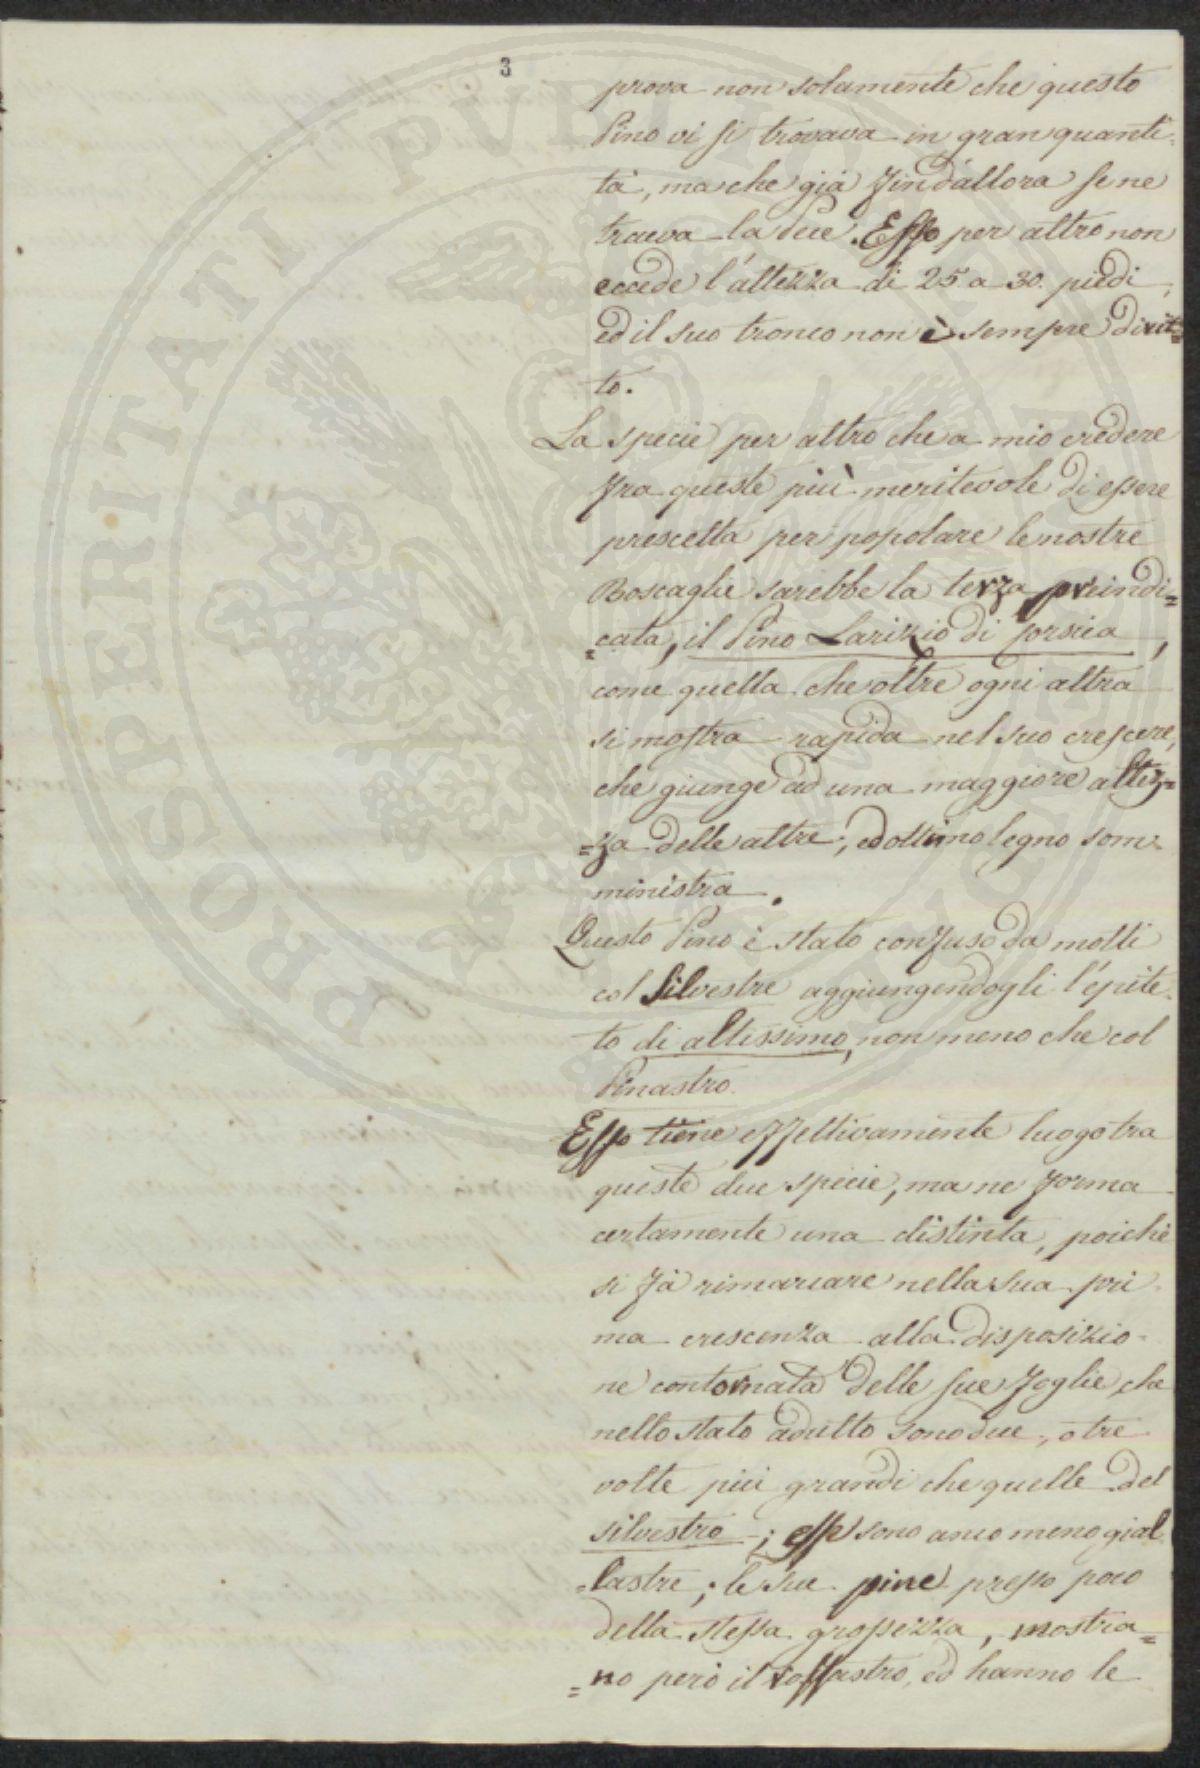 3
prova non solamente che questo
Pino vi si trovava in gran quanti-
tà, ma che già find'allora se ne
traeva la Pece. Esso per altro non
eccede l'altezza di 25 a 30. piedi,
ed il suo tronco non è sempre dirit=
to.
La specie per altro che a mio credere
fra queste più meritevole di essere
prescelta per popolare le nostre
Boscaglie sarebbe la terza preindi=
=cata, il Pino Larizio di Corsica,
come quella che oltre ogni altra
si mostra rapida nel suo crescere,
che giunge ad una maggiore altez=
=za delle altre; ed ottimo legno som-
ministra.
Questo Pino è stato confuso da molti
col Silvestre aggiungendogli l'épite-
to di altissimo, non meno che col
Pinastro.
Esso tiene effettivamente luogo tra
queste due specie, ma ne forma
certamente una distinta, poichè
si fà rimarcare nella sua pri-
ma crescenza alla disposizio-
ne contornata delle sue foglie, che
nello stato adulto sono due, o tre
volte più grandi che quelle del
silvestro; esse sono anco meno gial
=lastre; le sue pine presso poco
della stessa grossezza, mostra=
=no però il rossastro, ed hanno le
PROSPERITATI PVBLICAE